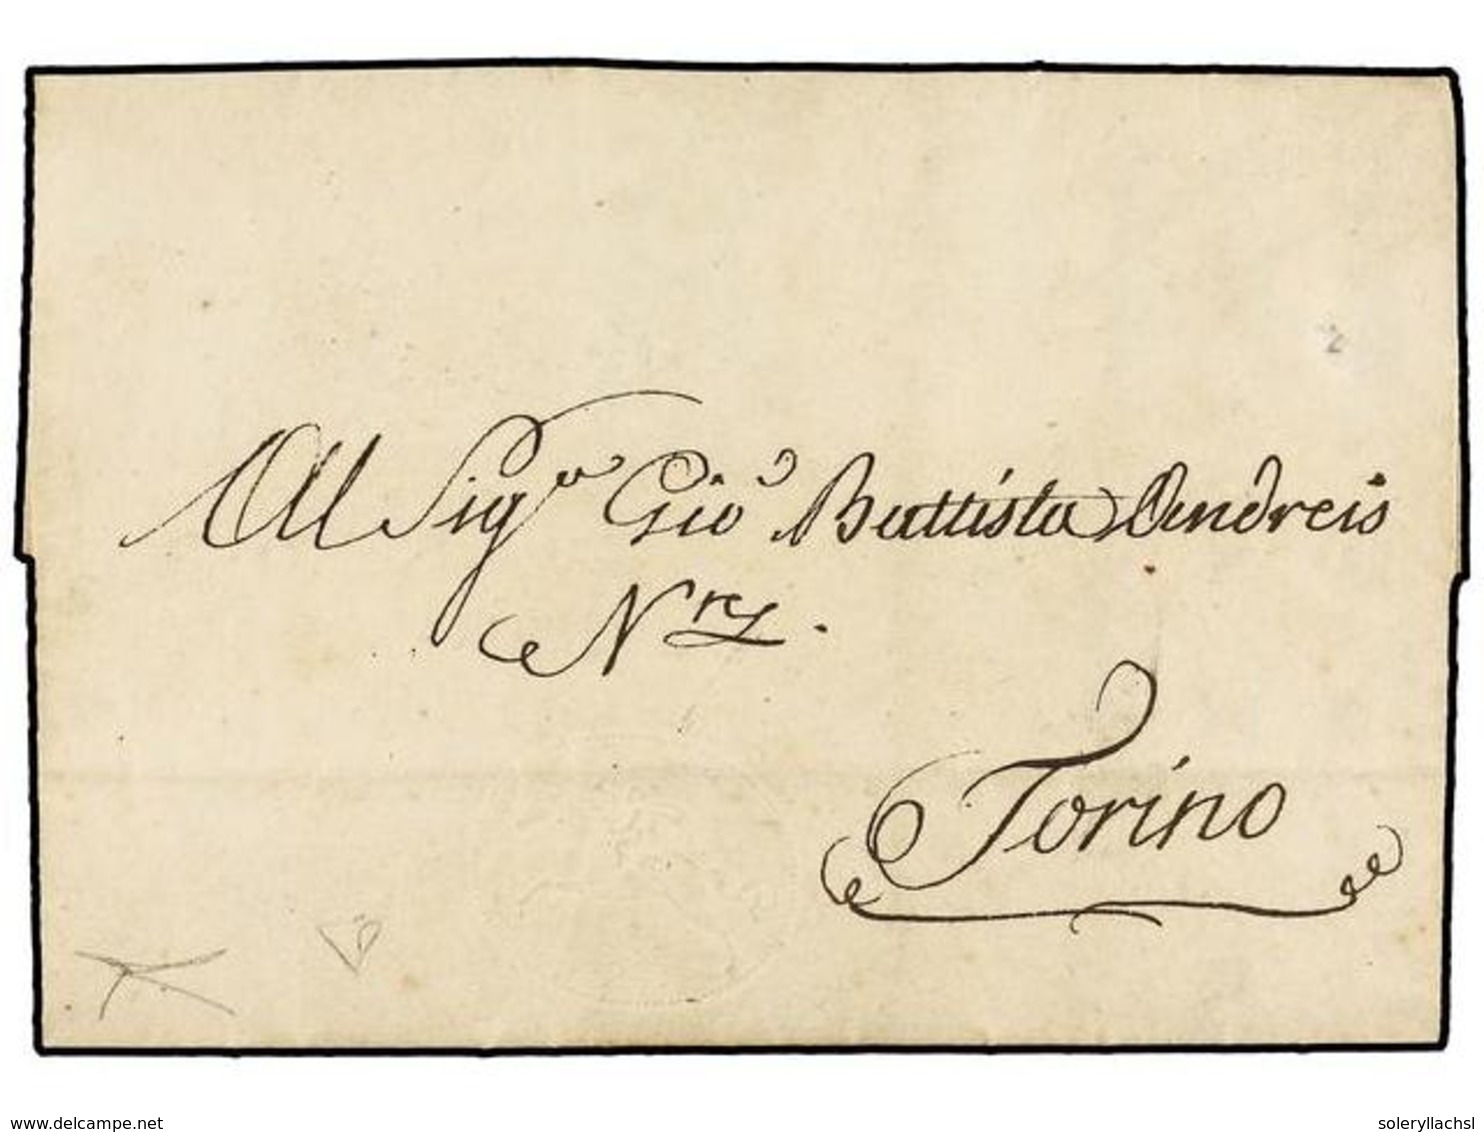 2
Al Sigr Gio Battista Andreis
N
Torino
delcampe.net
soleryllachsl